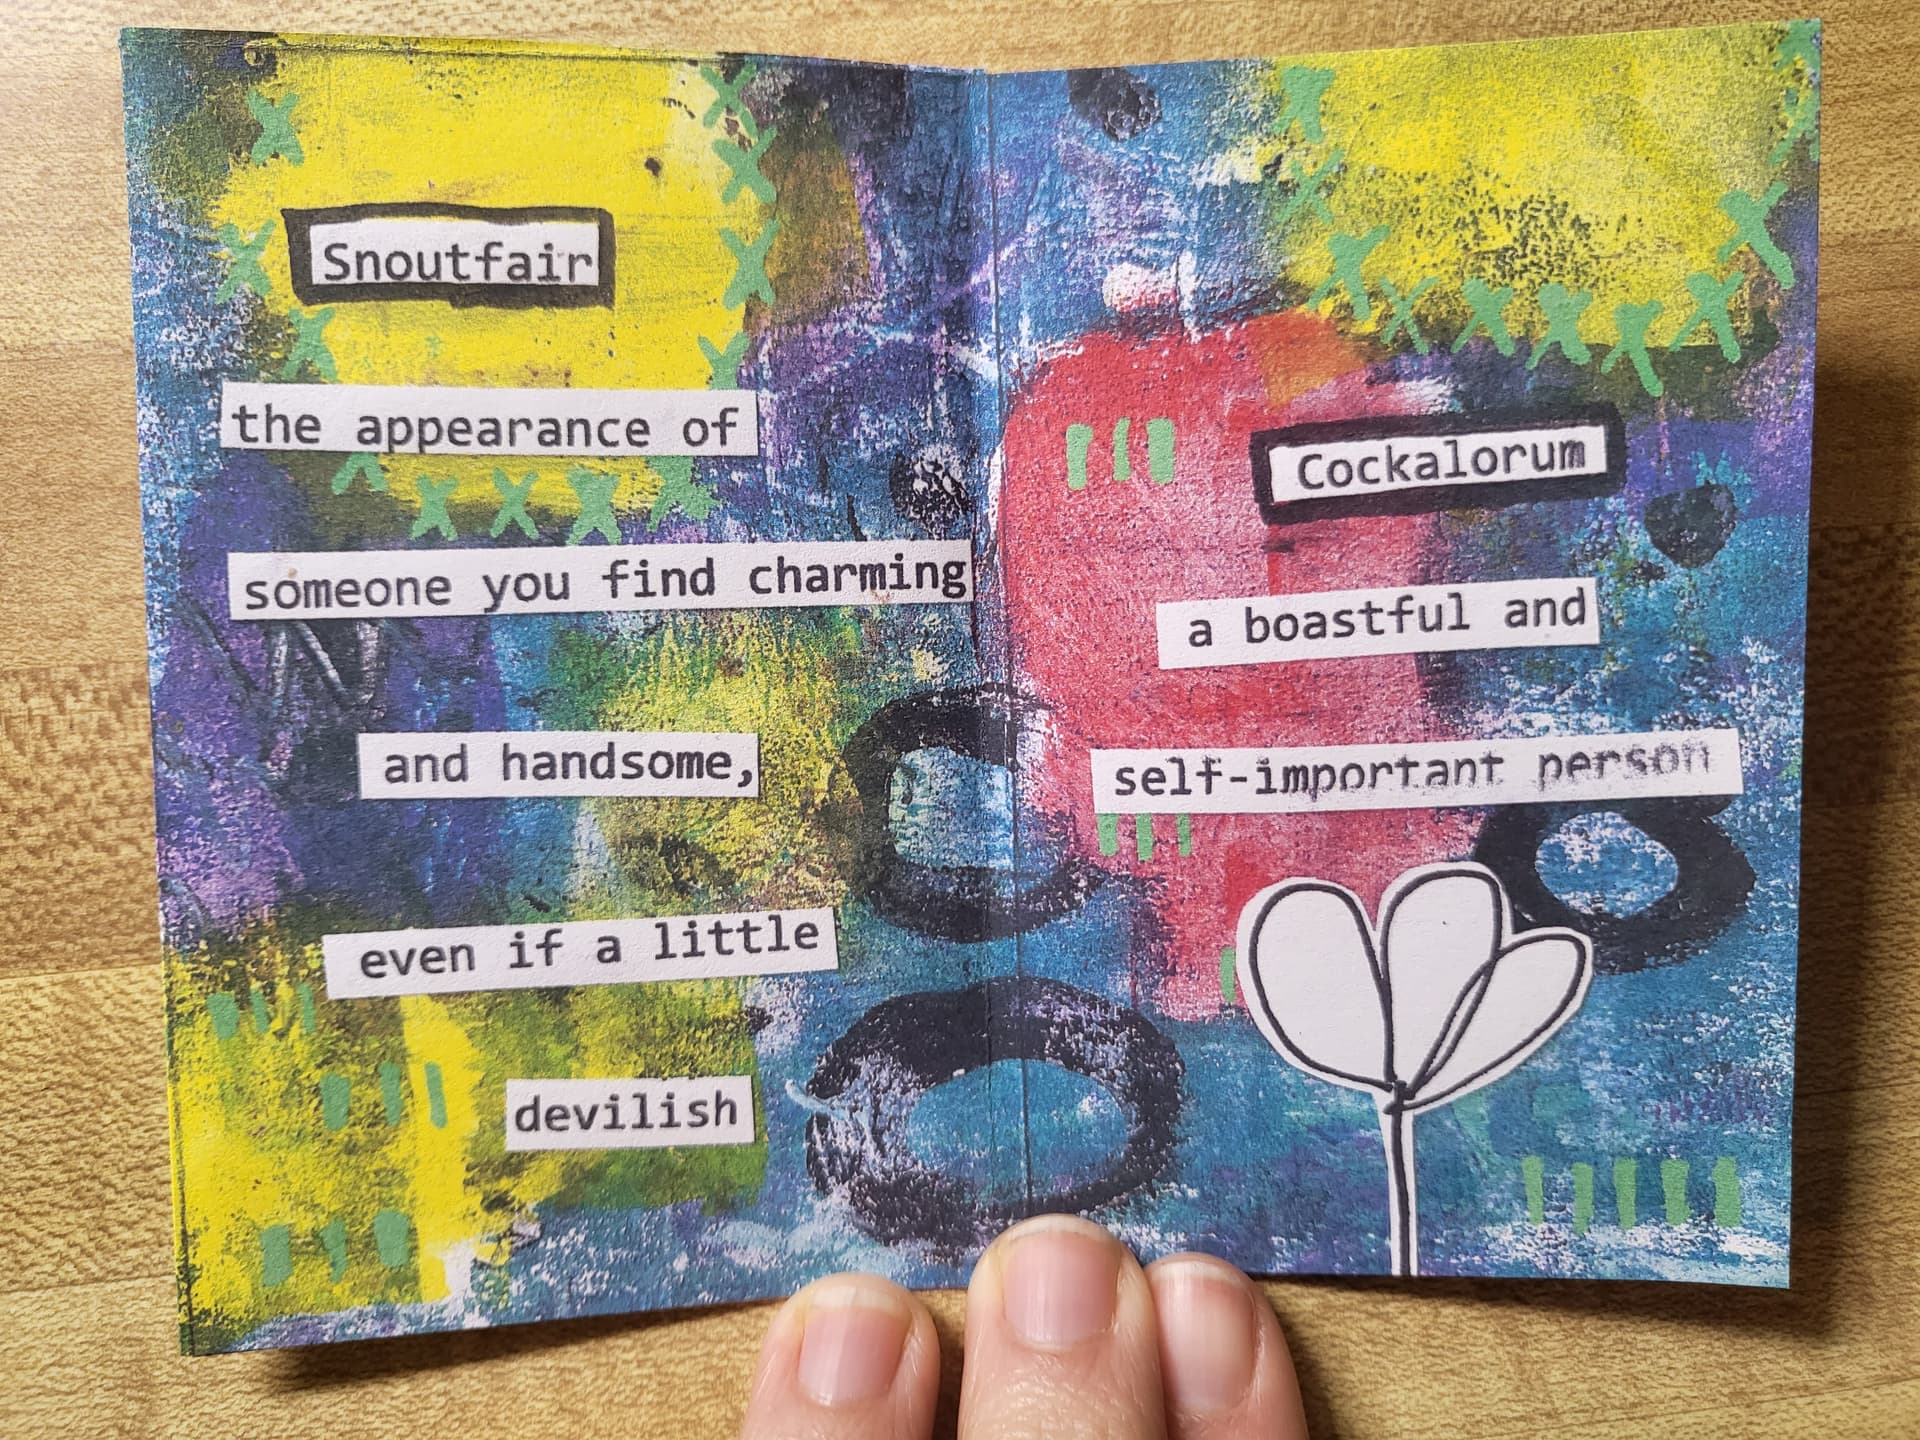 Snoutfair
the appearance of
someone you find charming
and handsome,
even if a little
devilish
Cockalorum
a boastful and
self-important person